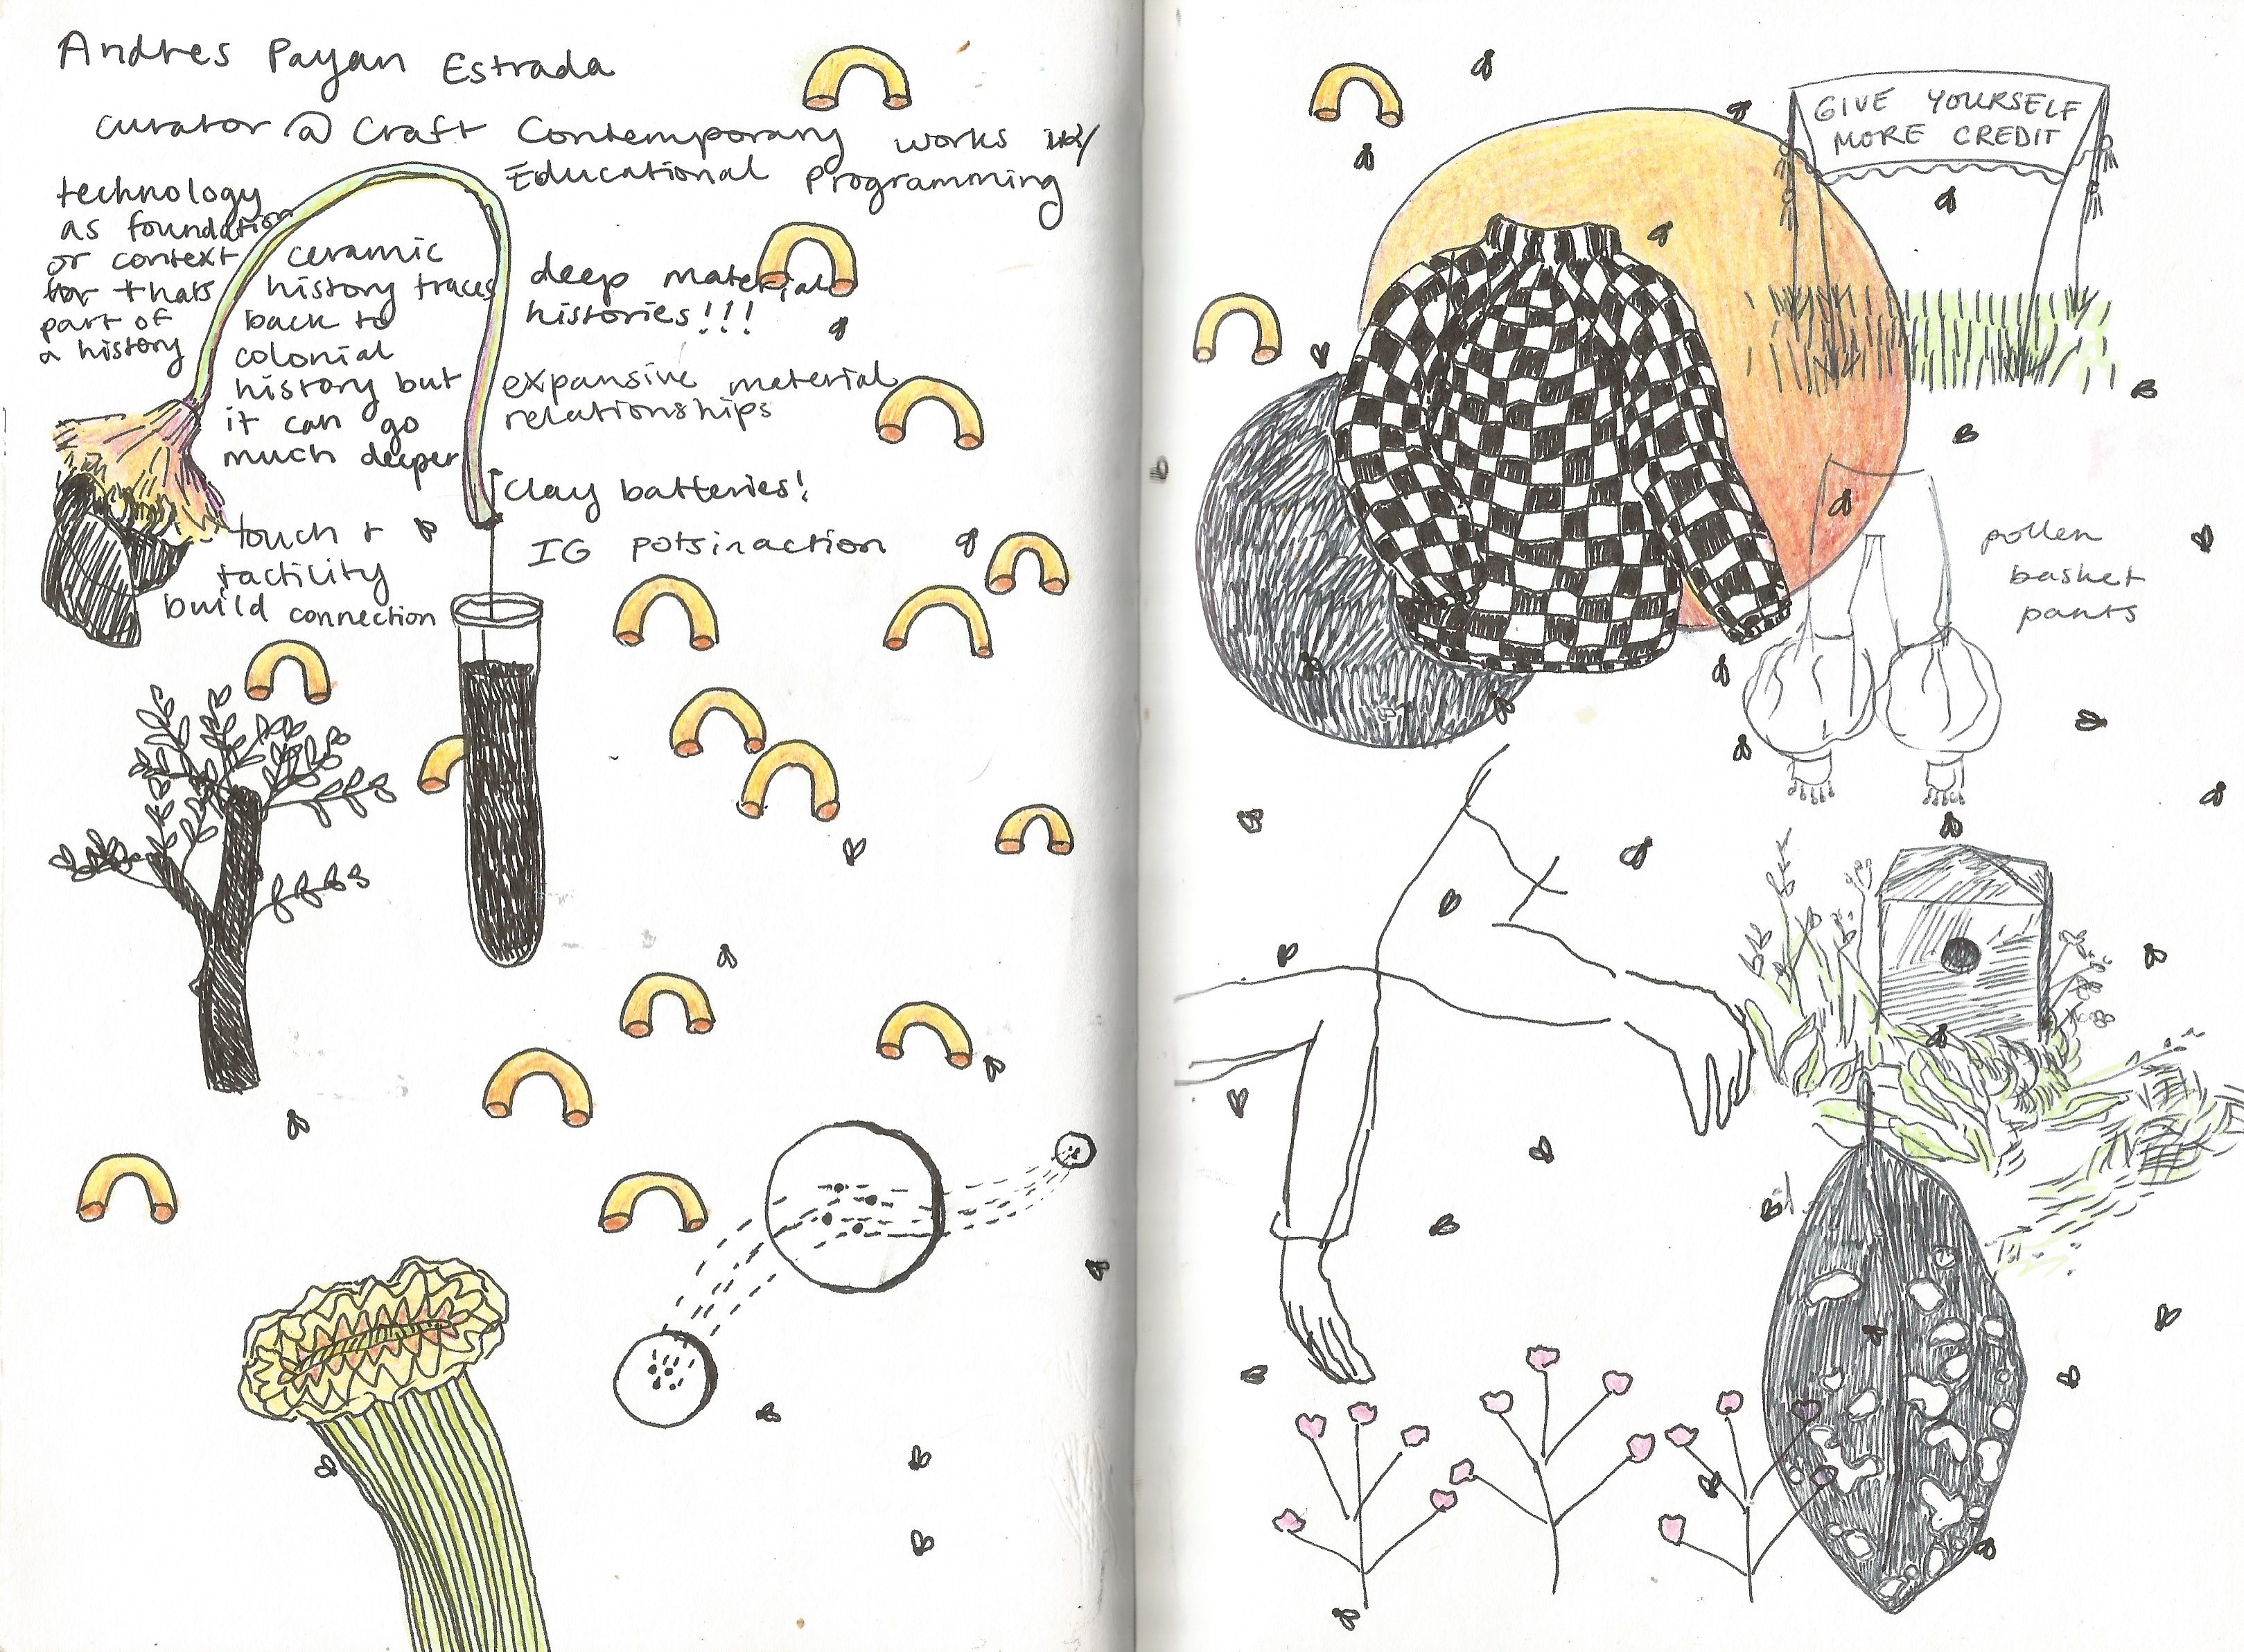 Andres Payan Estrada
curator @ Craft Contemporary works w/
Educational Programming
technology
as foundation
or context
for thats
part of
a history
ceramic
history traces
back to
colonial
history but
it can go
much deeper
deep material
histories!!!
expansive material
relationships
clay batteries!
IG potsinaction
touch +
tactility
build connection
GIVE YOURSELF
MORE CREDIT
pollen
basket
pants